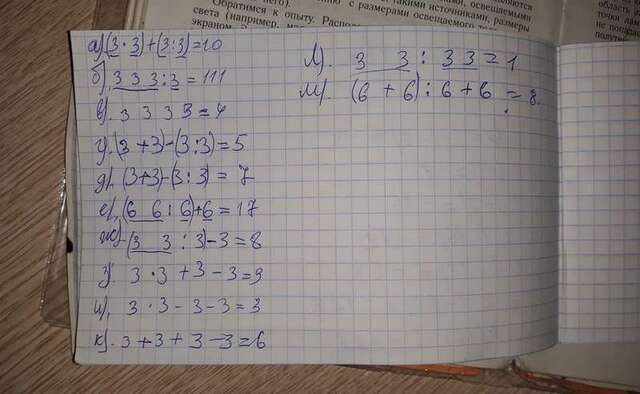 Обратимся к опыту. Распо
света (например, ма
экраном
освещаемыми
такими источниками, размеры
с размерами освещаемого
област
точки
не попадае
а) (3·3)+(3:3)=10
б). 3 3 3:3=111
в). 3 3 3 3=4
г). (3+3)-(3:3)=5
д). (3+3)-(3:3)=7
е). (6 6:6)+6=17
ж) (3 3:3)-3=8
з). 3·3+3-3=9
и). 3·3-3-3=3
к). 3+3+3-3=6
л). 3 3:3 3=1
м). (6+6):6+6=8.